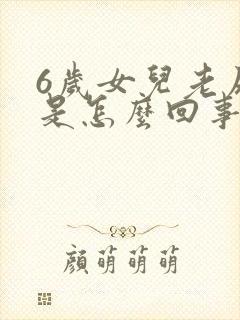 6歲女兒老
是怎麼回事
顏萌萌萌